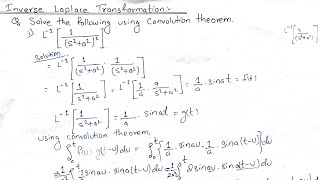 Inverse Laplace Transformation:-
Q. Solve the following using Convolution theorem.
1) L⁻¹[1/(s²+a²)²]
L⁻¹[s/(s²+a²)]
Solution
= L⁻¹[1/(s²+a²) · 1/(s²+a²)]
= L⁻¹[1/(s²+a²)] = L⁻¹[1/a · a/(s²+a²)] = 1/a · sinat = f(t)
L⁻¹[1/(s²+a²)] = 1/a · sinat = g(t)
using convolution theorem,
∫₀ᵗ f(u) g(t-u)du = ∫₀ᵗ {1/a · sinau · 1/a · sina(t-u)}du